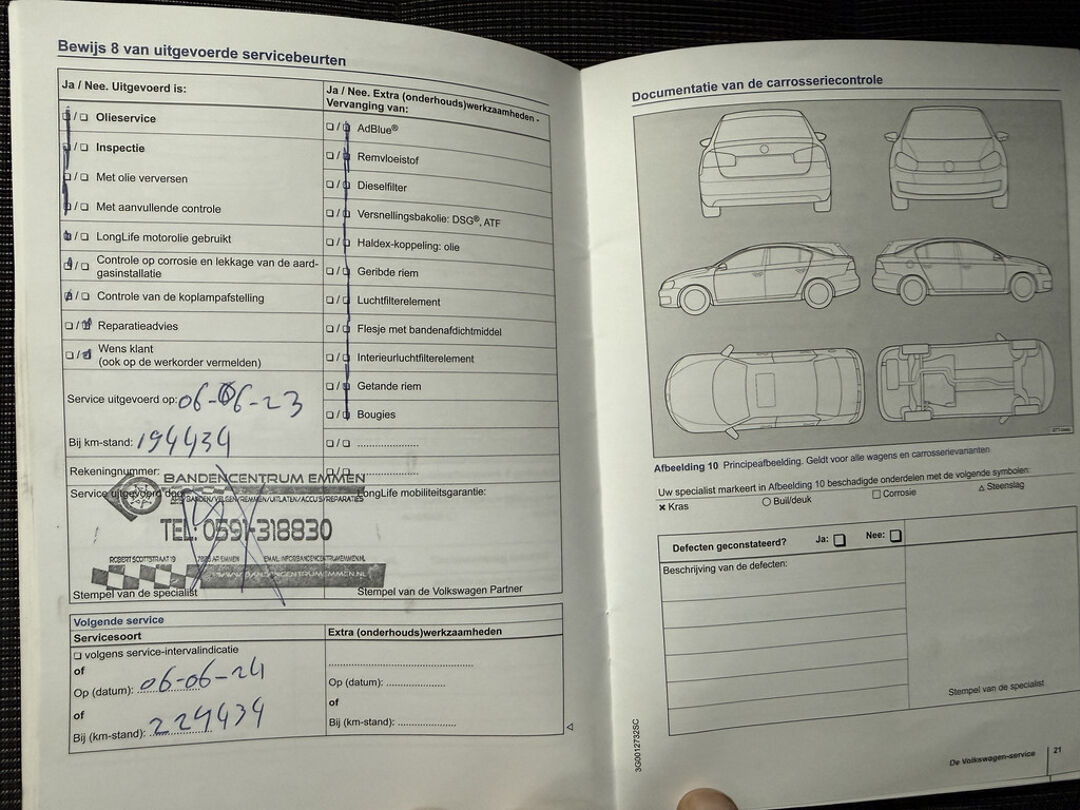 Bewijs 8 van uitgevoerde servicebeurten
Ja / Nee. Uitgevoerd is:
Olieservice
Inspectie
Met olie verversen
Met aanvullende controle
LongLife motorolie gebruikt
Controle op corrosie en lekkage van de aard-
gasinstallatie
Controle van de koplampafstelling
Reparatieadvies
Wens klant
(ook op de werkorder vermelden)
Service uitgevoerd op: 06-06-23
Bij km-stand: 194434
Rekeningnummer:
Service uitgevoerd door:
Stempel van de specialist
Ja / Nee. Extra (onderhouds)werkzaamheden -
Vervanging van:
AdBlue®
Remvloeistof
Dieselfilter
Versnellingsbakolie: DSG®, ATF
Haldex-koppeling: olie
Geribde riem
Luchtfilterelement
Flesje met bandenafdichtmiddel
Interieurluchtfilterelement
Getande riem
Bougies
LongLife mobiliteitsgarantie:
Stempel van de Volkswagen Partner
BANDENCENTRUM EMMEN
BANDEN/VELGEN/REMMEN/UITLATEN/ACCU'S/REPARATIES
TEL: 0591-318830
ROBERT SCOTTSTRAAT 19
EMMEN
EMAIL: INFO@BANDENCENTRUMEMMEN.NL
WWW.BANDENCENTRUMEMMEN.NL
Volgende service
Servicesoort
volgens service-intervalindicatie
of
Op (datum): 06-06-24
of
Bij (km-stand): 224434
Extra (onderhouds)werkzaamheden
Op (datum):
of
Bij (km-stand):
Documentatie van de carrosseriecontrole
Afbeelding 10 Principeafbeelding. Geldt voor alle wagens en carrosserievarianten
Uw specialist markeert in Afbeelding 10 beschadigde onderdelen met de volgende symbolen:
✖ Kras ○ Buil/deuk □ Corrosie △ Steenslag
Defecten geconstateerd? Ja: Nee:
Beschrijving van de defecten:
Stempel van de specialist
3G0012732SC
De Volkswagen-service 21